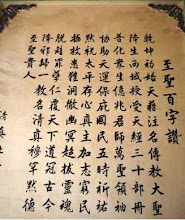 至聖百字讚
乾坤初始天籍注名傳教大聖
降生西域受授天經三十部冊
普化衆生億兆君師萬聖領袖
協助天運保庇國民五時祈祐
默祝太平存心真主加志窮民
拯救患難洞徹幽冥超拔靈魂
脫離罪業仁覆天下道冠古今
降邪歸一教名清真穆罕默德
至聖貴人
清真